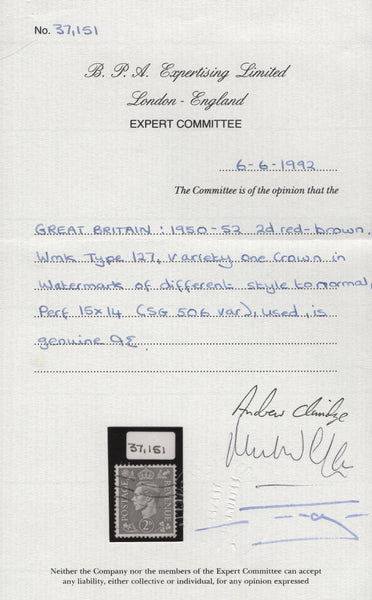 No. 37,151
B. P. A. Expertising Limited
London - England
EXPERT COMMITTEE
6-6-1992
The Committee is of the opinion that the
GREAT BRITAIN: 1950-52 2d red-brown,
Wmk Type 127, variety one Crown in
Watermark of different style to normal,
Perf 15x14 (SG 506 var), used, is
genuine
Andrew
37,151
POSTAGE
REVENUE
2D
Neither the Company nor the members of the Expert Committee can accept
any liability, either collective or individual, for any opinion expressed